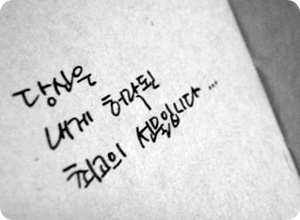 당신은
내게 허락된
최고의 선물입니다...